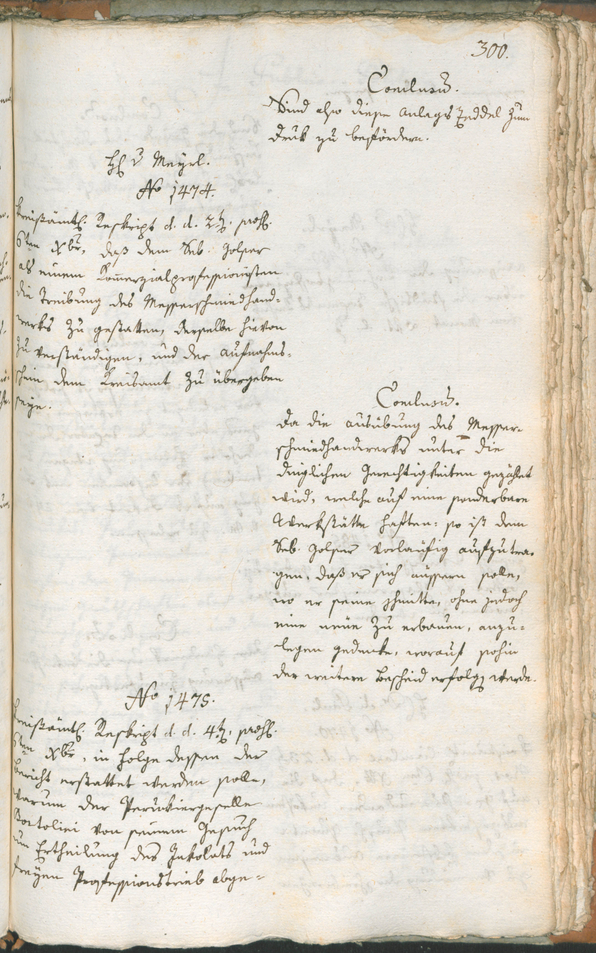 300.
Conclusum.
Sind also diese Anlags Zeddel zum
Druk zu befördern.
H. v. Mayrl.
No 1474.
Kreißämtl. Reskript d. d. 2t. praes.
6ten Xbr, daß dem Seb. Holzer
als einem Kommerzialprofessionisten
die Treibung des Messerschmiedhand-
werks zu gestatten, derselbe hievon
zu verständigen, und der Aufnahms-
schein dem Kreisamt zu übergeben
seye.
Conclusum.
Da die Ausübung des Messer-
schmiedhandwerks unter die
dinglichen Gerechtigkeiten gezählet
wird, welche auf eine sonderbare
Werkstätte haften: so ist dem
Seb. Holzer vorläufig aufzutra-
gen, daß er sich äussern solle,
wo er seine Schmitte, ohne jedoch
eine neue zu erbauen, anzu-
legen gedenke, worauf sohin
der weitere Bescheid erfolgen werde.
No 1475.
Kreißämtl. Reskript d. d. 4t. praes.
6ten Xbr, in Folge dessen der
Bericht erstattet werden solle,
warum der Perükiergeselle
Bortolini von seinem Gesuch
um Ertheilung des Inkolats und
freyen Professionstrieb abge-